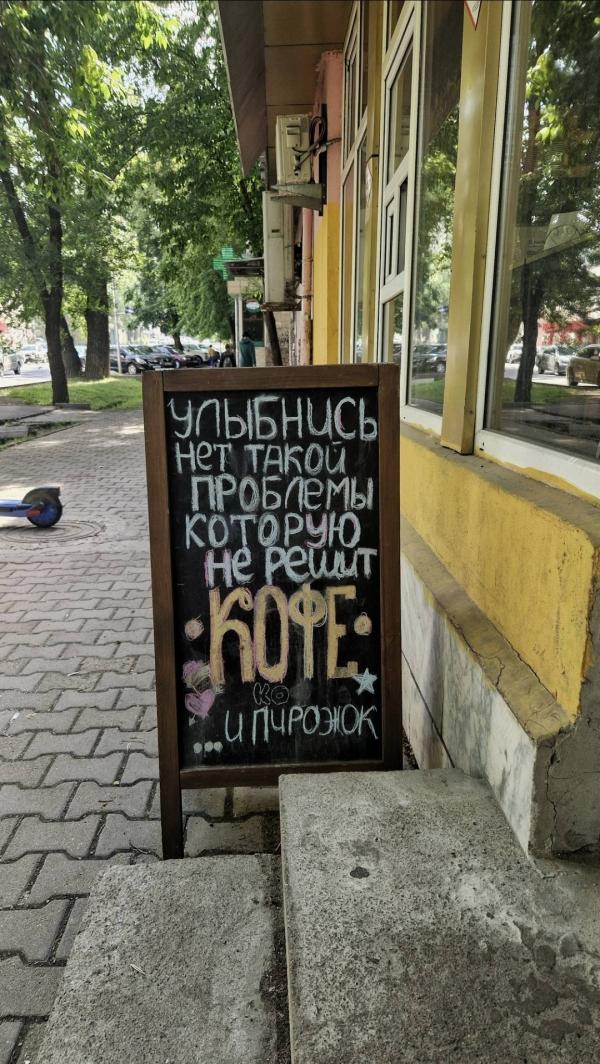 УЛЫБНИСЬ
НЕТ ТАКОЙ
ПРОБЛЕМЫ
КОТОРУЮ
НЕ РЕШИТ
•КОФЕ•
КО
...И ПИРОЖОК